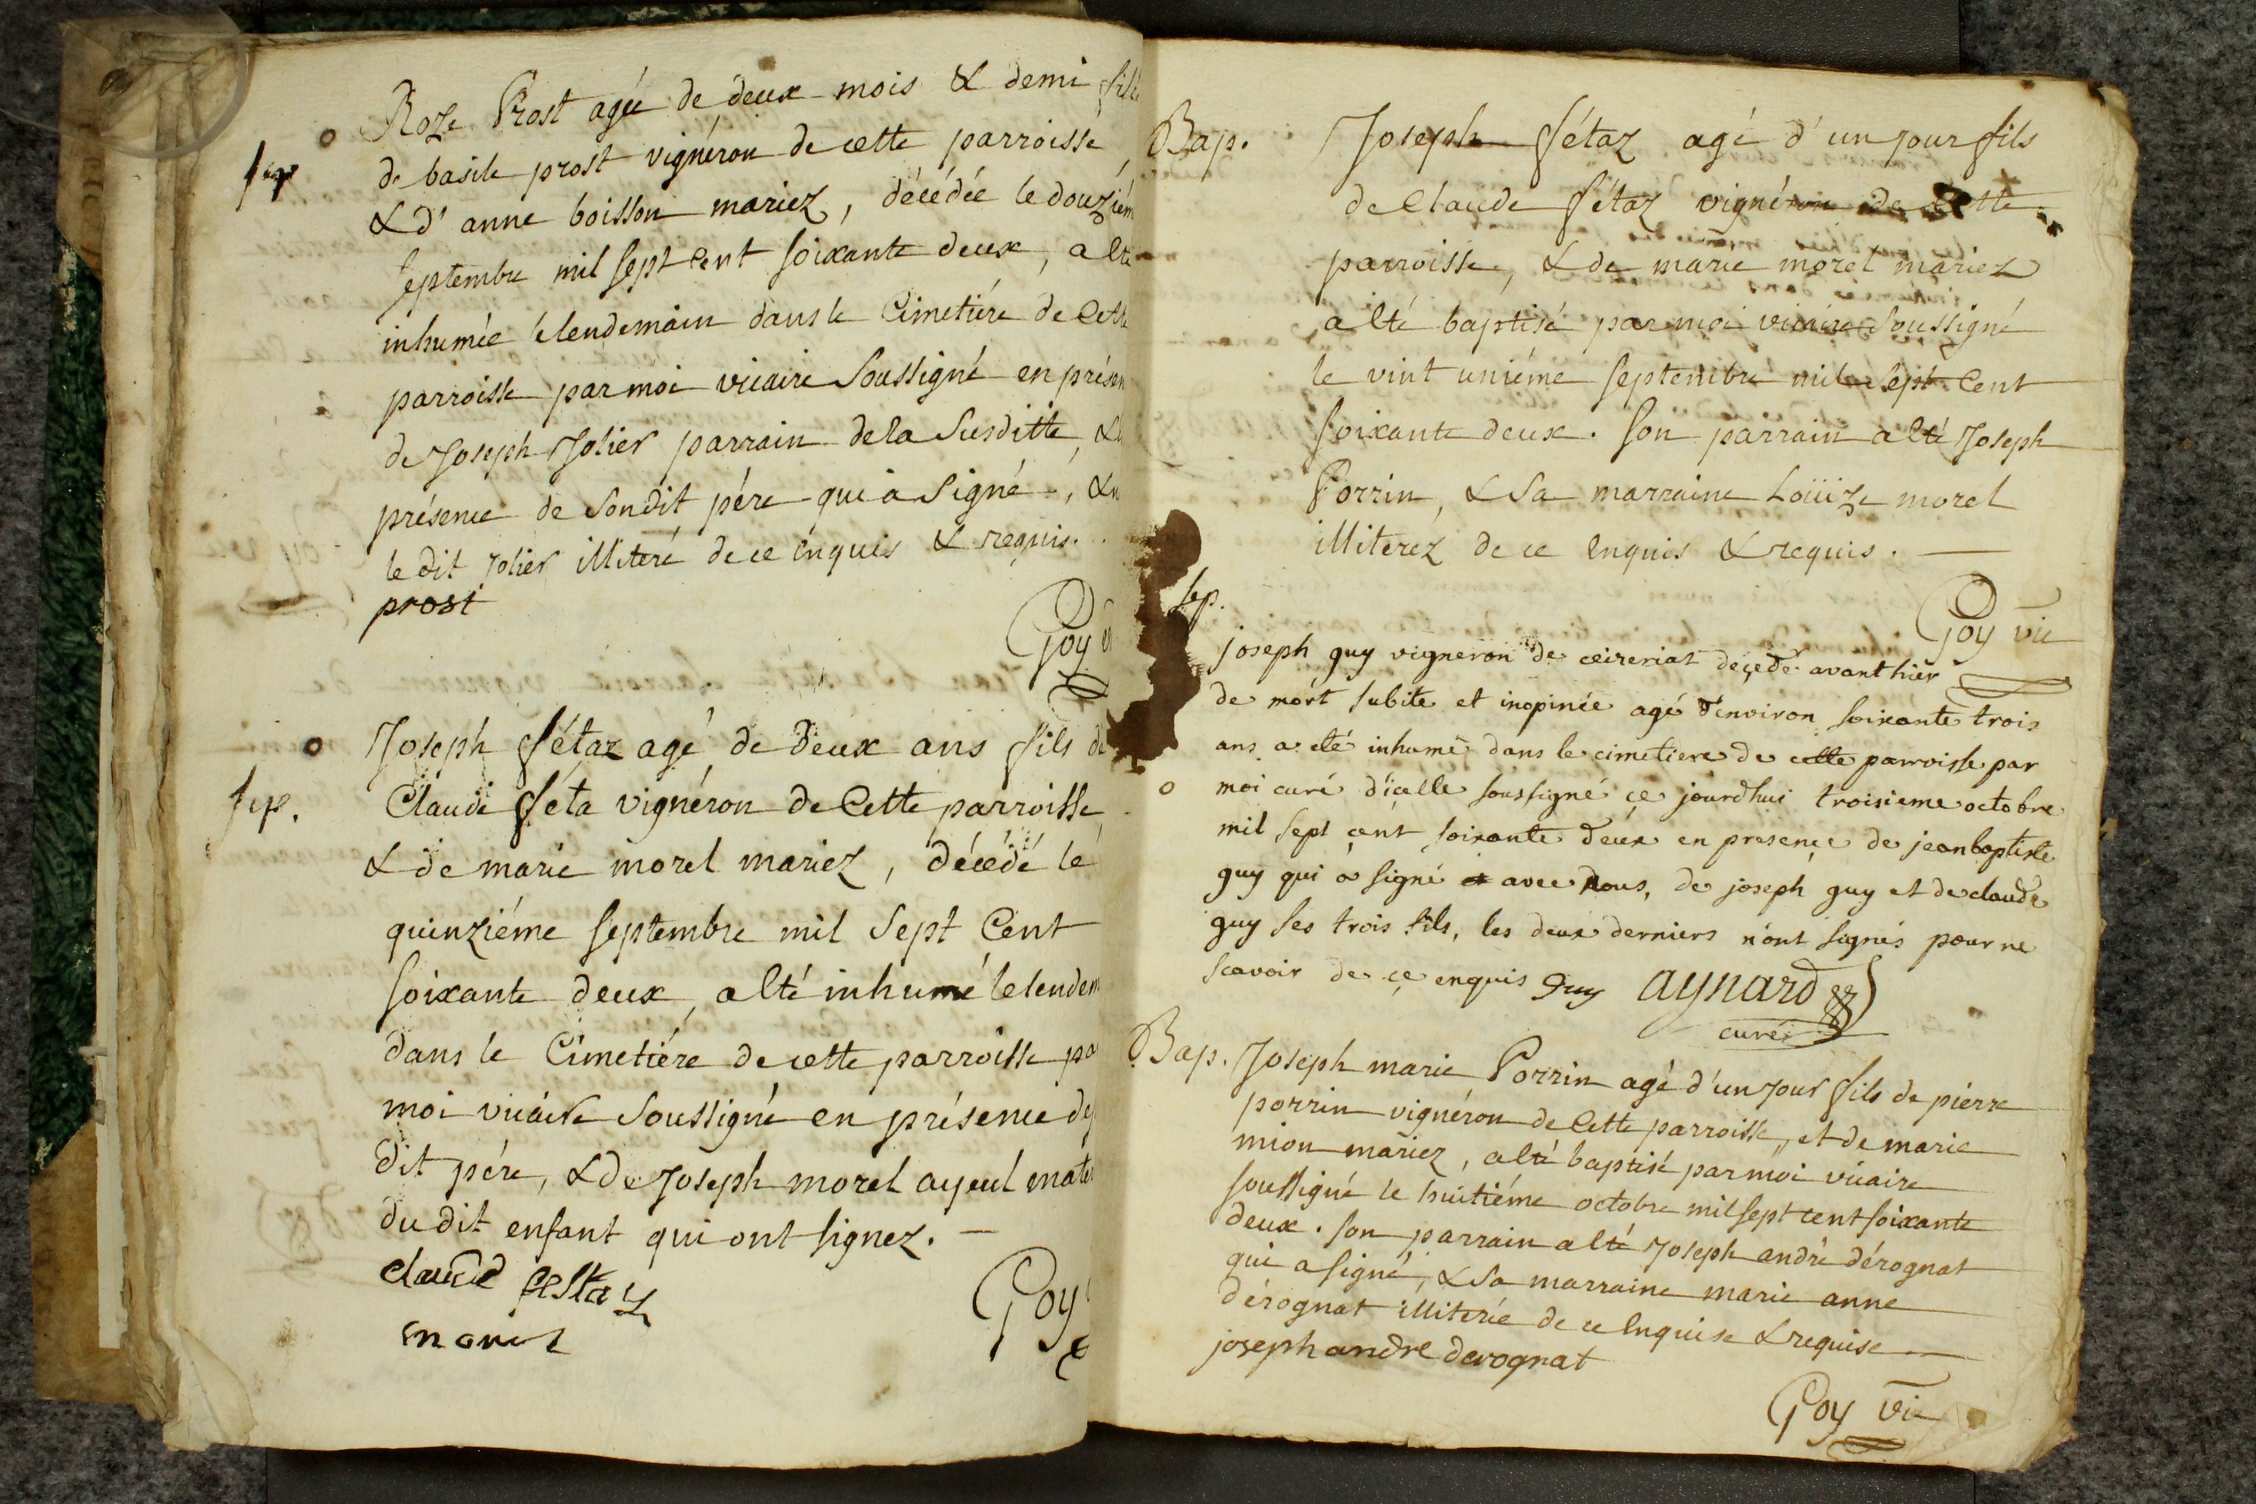 sep
Roze Prost agée de deux mois & demi fill
de basile prost vignéron de cette parroisse
& d'anne boisson mariez, décédée le douzièm
septembre mil sept cent soixante deux, a été
inhumée lelendemain dans le Cimetiére de Cette
parroisse par moi vicaire Soussigné en présen
de Joseph Jolier parrain de la Susditte, &
présence de Sondit pére qui a Signé, &
le dit Jolier illiteré de ce enquis & requis.
prost
Goy
sep.
Joseph fétaz agé de deux ans fils de
Claude féta vignéron de Cette parroisse,
& de marie morel mariez, décédé le
quinziéme septembre mil Sept Cent
soixante deux, a été inhumé lelendem
dans le Cimetiére de cette parroisse pa
moi vicaire Soussigné en présence du
dit pére, & de Joseph morel ayeul mater
du dit enfant qui ont signez.
claude festaz
morel
Goy
Bap.
Joseph fétaz agé d'un jour fils
de Claude fétaz vignéron de Cette
parroisse, & de marie morel mariez
a été baptisé par moi vicaire Soussigné
le vint uniéme septembre mil Sept Cent
soixante deux. son parrain a été Joseph
Porrin, & Sa marraine Loüize morel
illiterez de ce enquis & requis.
Goy vic
sep.
joseph guy vigneron de ceizeriat deçedé avant hier
de mort subite et inopinée agé d'environ soixante trois
ans a été inhumé dans le cimetiere de cette parroisse par
moi curé d'icelle soussigné ce jourdhui troisieme octobre
mil sept çent soixante deux en presençe de jean baptiste
guy qui a signé avec nous, de joseph guy et de claude
guy ses trois fils, les deux derniers n'ont signés pour ne
scavoir de çe enquis guy aynard
curé
Bap.
Joseph marie Porrin agé d'un jour fils de pierre
porrin vignéron de Cette parroisse, et de marie
mion mariez, a été baptisé par moi vicaire
soussigné le huitiéme octobre mil sept cent soixante
deux. son parrain a été Joseph andré dérognat
qui a signé, & Sa marraine marie anne
dérognat illiterée de ce enquise & requise
joseph andre derognat
Goy vic